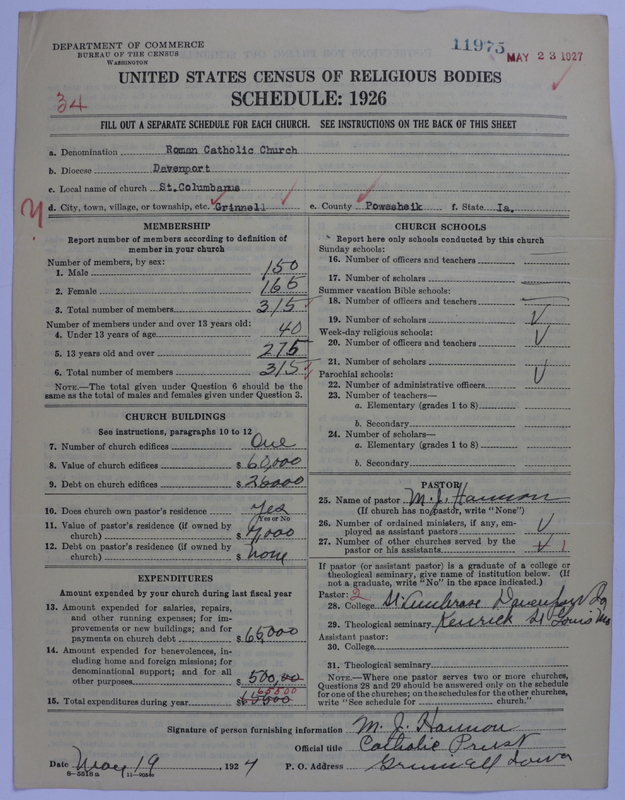 DEPARTMENT OF COMMERCE
BUREAU OF THE CENSUS
WASHINGTON
11975
MAY 23 1927
UNITED STATES CENSUS OF RELIGIOUS BODIES
34
SCHEDULE: 1926
FILL OUT A SEPARATE SCHEDULE FOR EACH CHURCH. SEE INSTRUCTIONS ON THE BACK OF THIS SHEET
a. Denomination Roman Catholic Church
b. Diocese Davenport
c. Local name of church St.Columbanus
d. City, town, village, or township, etc. Grinnell e. County Powesheik f. State Ia.
MEMBERSHIP
Report number of members according to definition of member in your church
Number of members, by sex:
1. Male 150
2. Female 165
3. Total number of members 315
Number of members under and over 13 years old:
4. Under 13 years of age 40
5. 13 years old and over 275
6. Total number of members 315
NOTE.—The total given under Question 6 should be the
same as the total of males and females given under Question 3.
CHURCH BUILDINGS
See instructions, paragraphs 10 to 12
7. Number of church edifices One
8. Value of church edifices $ 60,000
9. Debt on church edifices $ 26000
10. Does church own pastor's residence yes
(Yes or No)
11. Value of pastor's residence (if owned by
church) $ 4,000
12. Debt on pastor's residence (if owned by
church) $ none
EXPENDITURES
Amount expended by your church during last fiscal year
13. Amount expended for salaries, repairs,
and other running expenses; for im-
provements or new buildings; and for
payments on church debt $ 65,000
14. Amount expended for benevolences, in-
cluding home and foreign missions; for
denominational support; and for all
other purposes $ 500,00
65500
15. Total expenditures during year $
CHURCH SCHOOLS
Report here only schools conducted by this church
Sunday schools:
16. Number of officers and teachers
17. Number of scholars
Summer vacation Bible schools:
18. Number of officers and teachers
19. Number of scholars
Week-day religious schools:
20. Number of officers and teachers
21. Number of scholars
Parochial schools:
22. Number of administrative officers
23. Number of teachers—
a. Elementary (grades 1 to 8)
b. Secondary
24. Number of scholars—
a. Elementary (grades 1 to 8)
b. Secondary
PASTOR
25. Name of pastor M. J. Hannon
(If church has no pastor, write "None")
26. Number of ordained ministers, if any, em-
ployed as assistant pastors
27. Number of other churches served by the
pastor or his assistants 1
If pastor (or assistant pastor) is a graduate of a college or
theological seminary, give name of institution below. (If
not a graduate, write "No" in the space indicated.)
Pastor: 2
28. College St Ambrose Davenport Ia
29. Theological seminary Kenrick St Louis Mo
Assistant pastor:
30. College
31. Theological seminary
NOTE.—Where one pastor serves two or more churches,
Questions 28 and 29 should be answered only on the schedule
for one of the churches; on the schedules for the other churches,
write "See schedule for church."
Signature of person furnishing information M. J. Hannon
Official title Catholic Priest
Date May 19, 1927 P. O. Address Grinnell Iowa